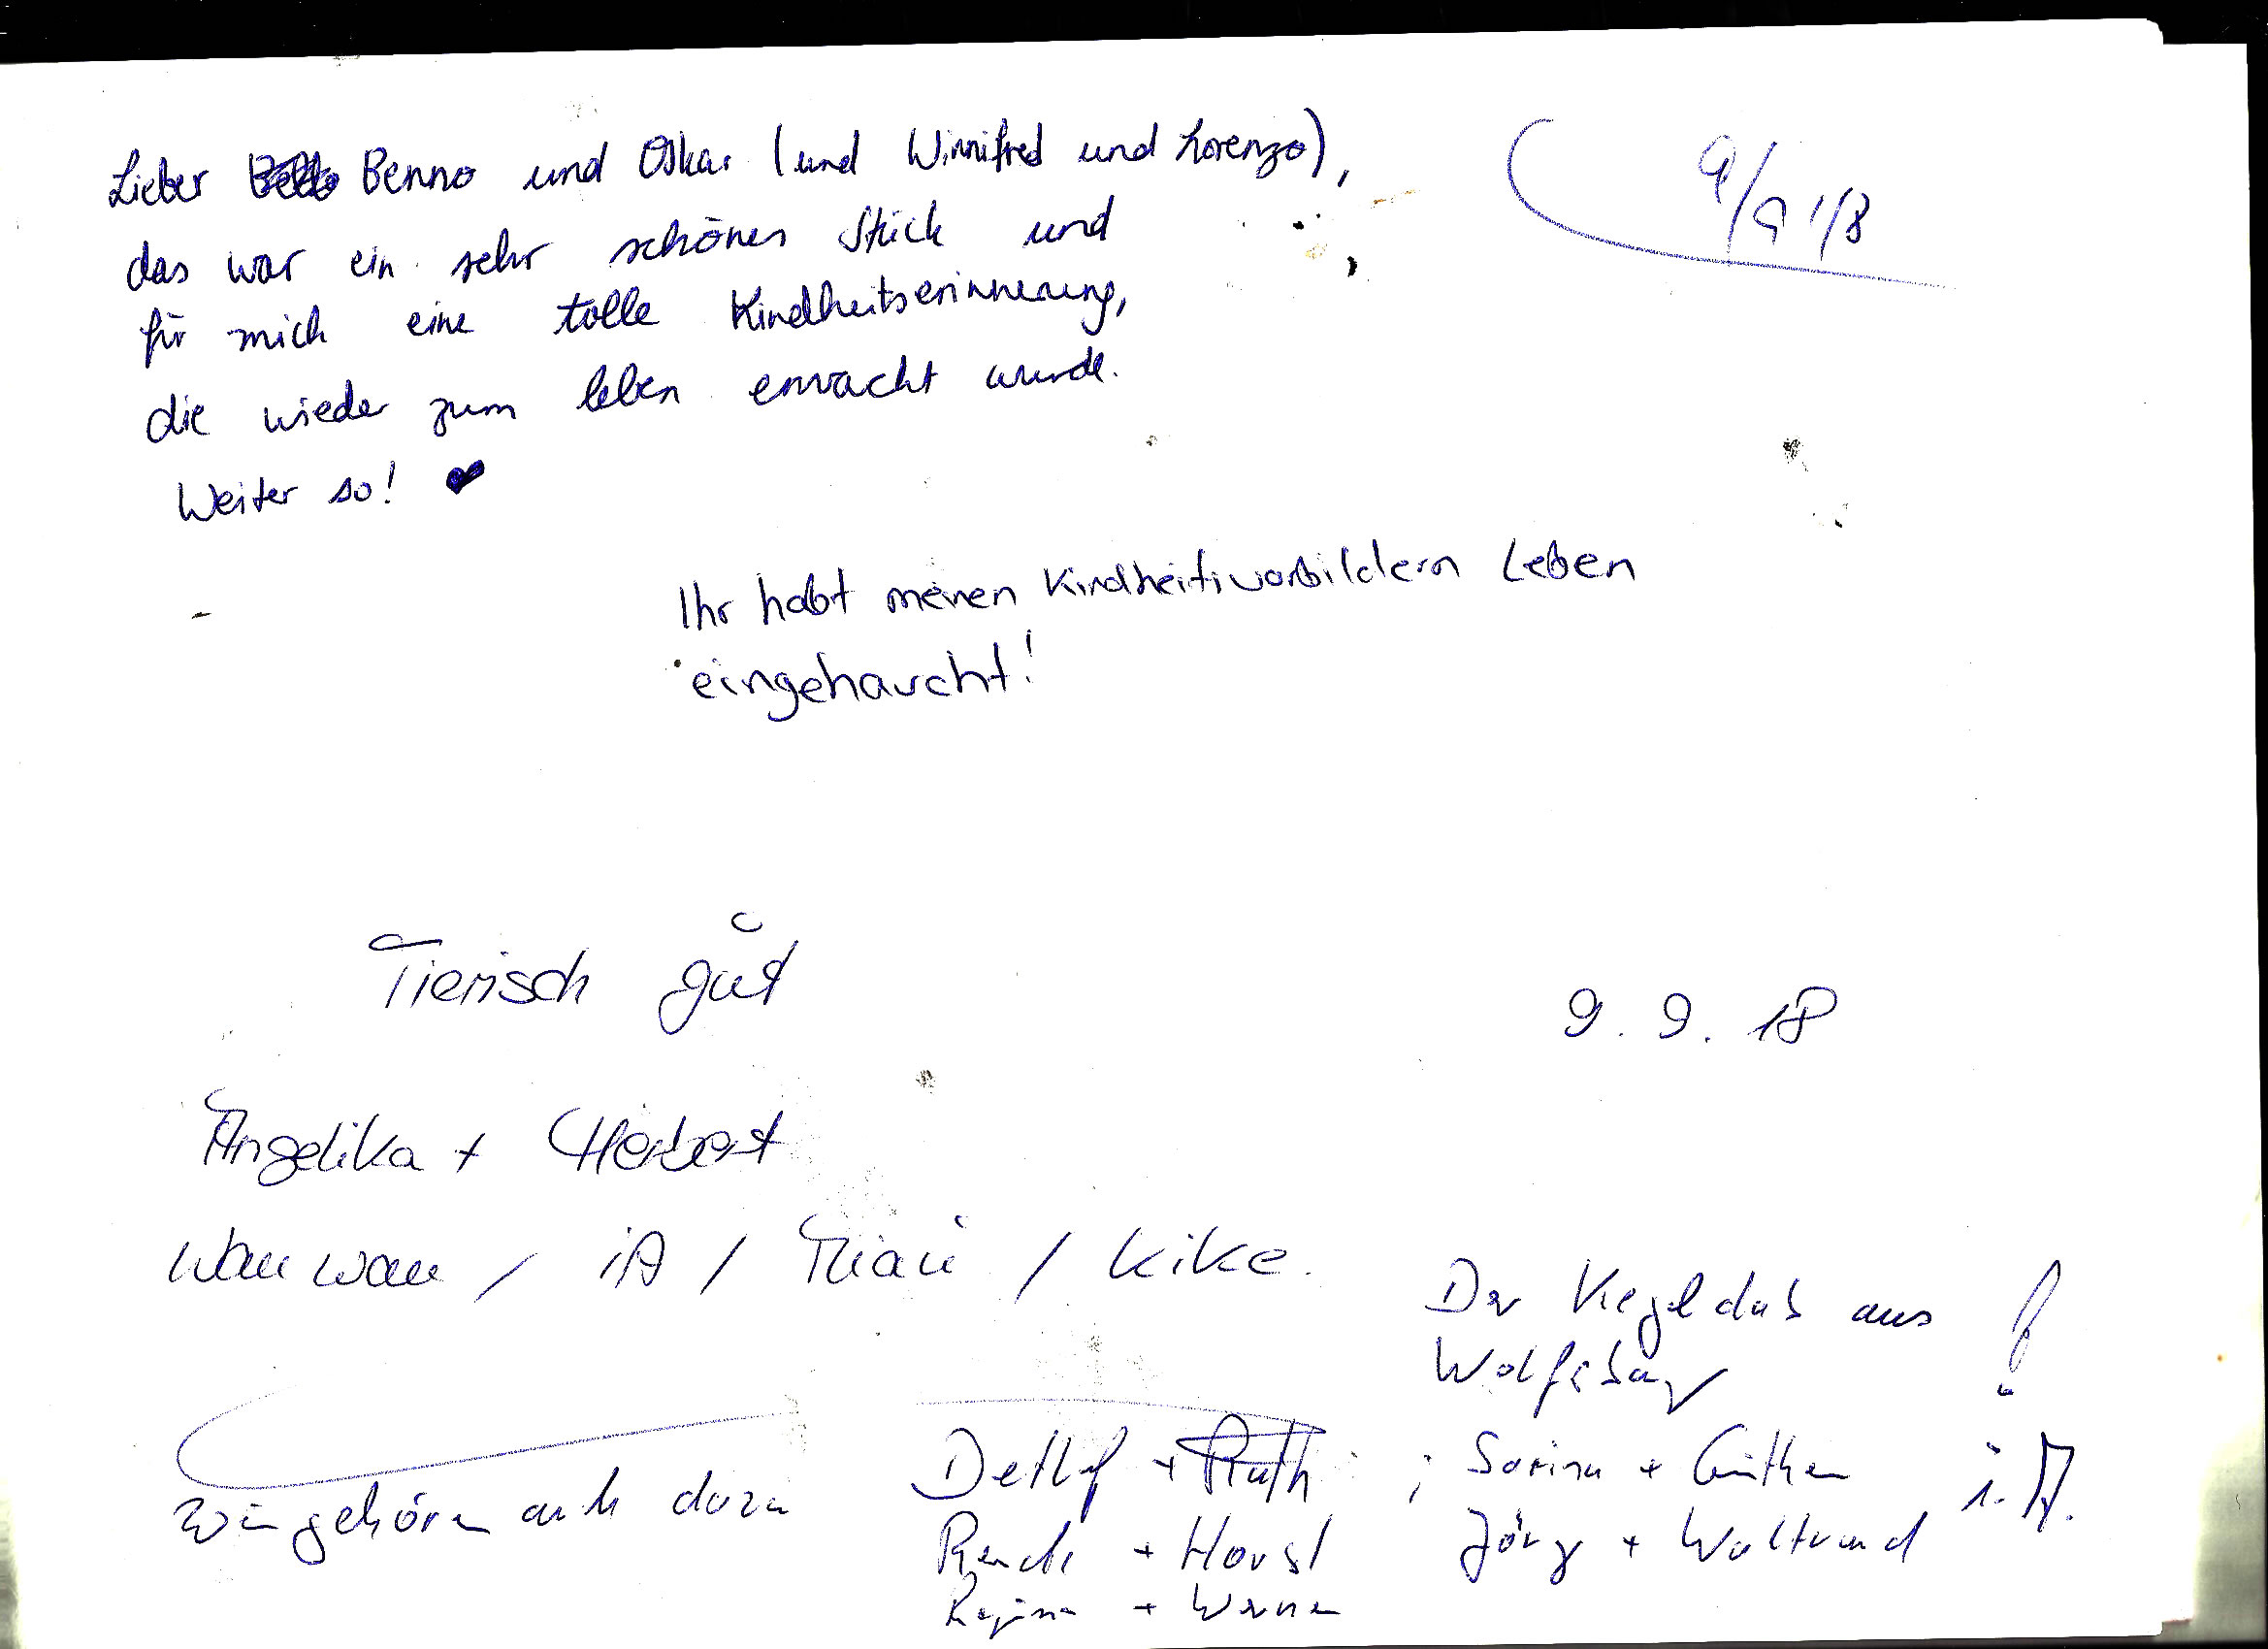 Lieber Benno und Oskar (und Winnifred und Lorenzo),
9/9 1/8
das war ein sehr schönes Stück und
für mich eine tolle Kindheitserinnerung,
die wieder zum leben erwacht wurde.
Weiter so! ♥
Ihr habt meinen Kindheitsvorbildern Leben
eingehaucht!
Tierisch gut
9. 9. 18
Angelika + Herbert
Wau wau / iA / Miau / Kike.
Der Kegelclub aus
Wolfsburg !
Wir gehören auch dazu
Detlef + Ruth ; Sorina + Günther i. A.
Renate + Horst Jörg + Waltraud
Regina + Werner